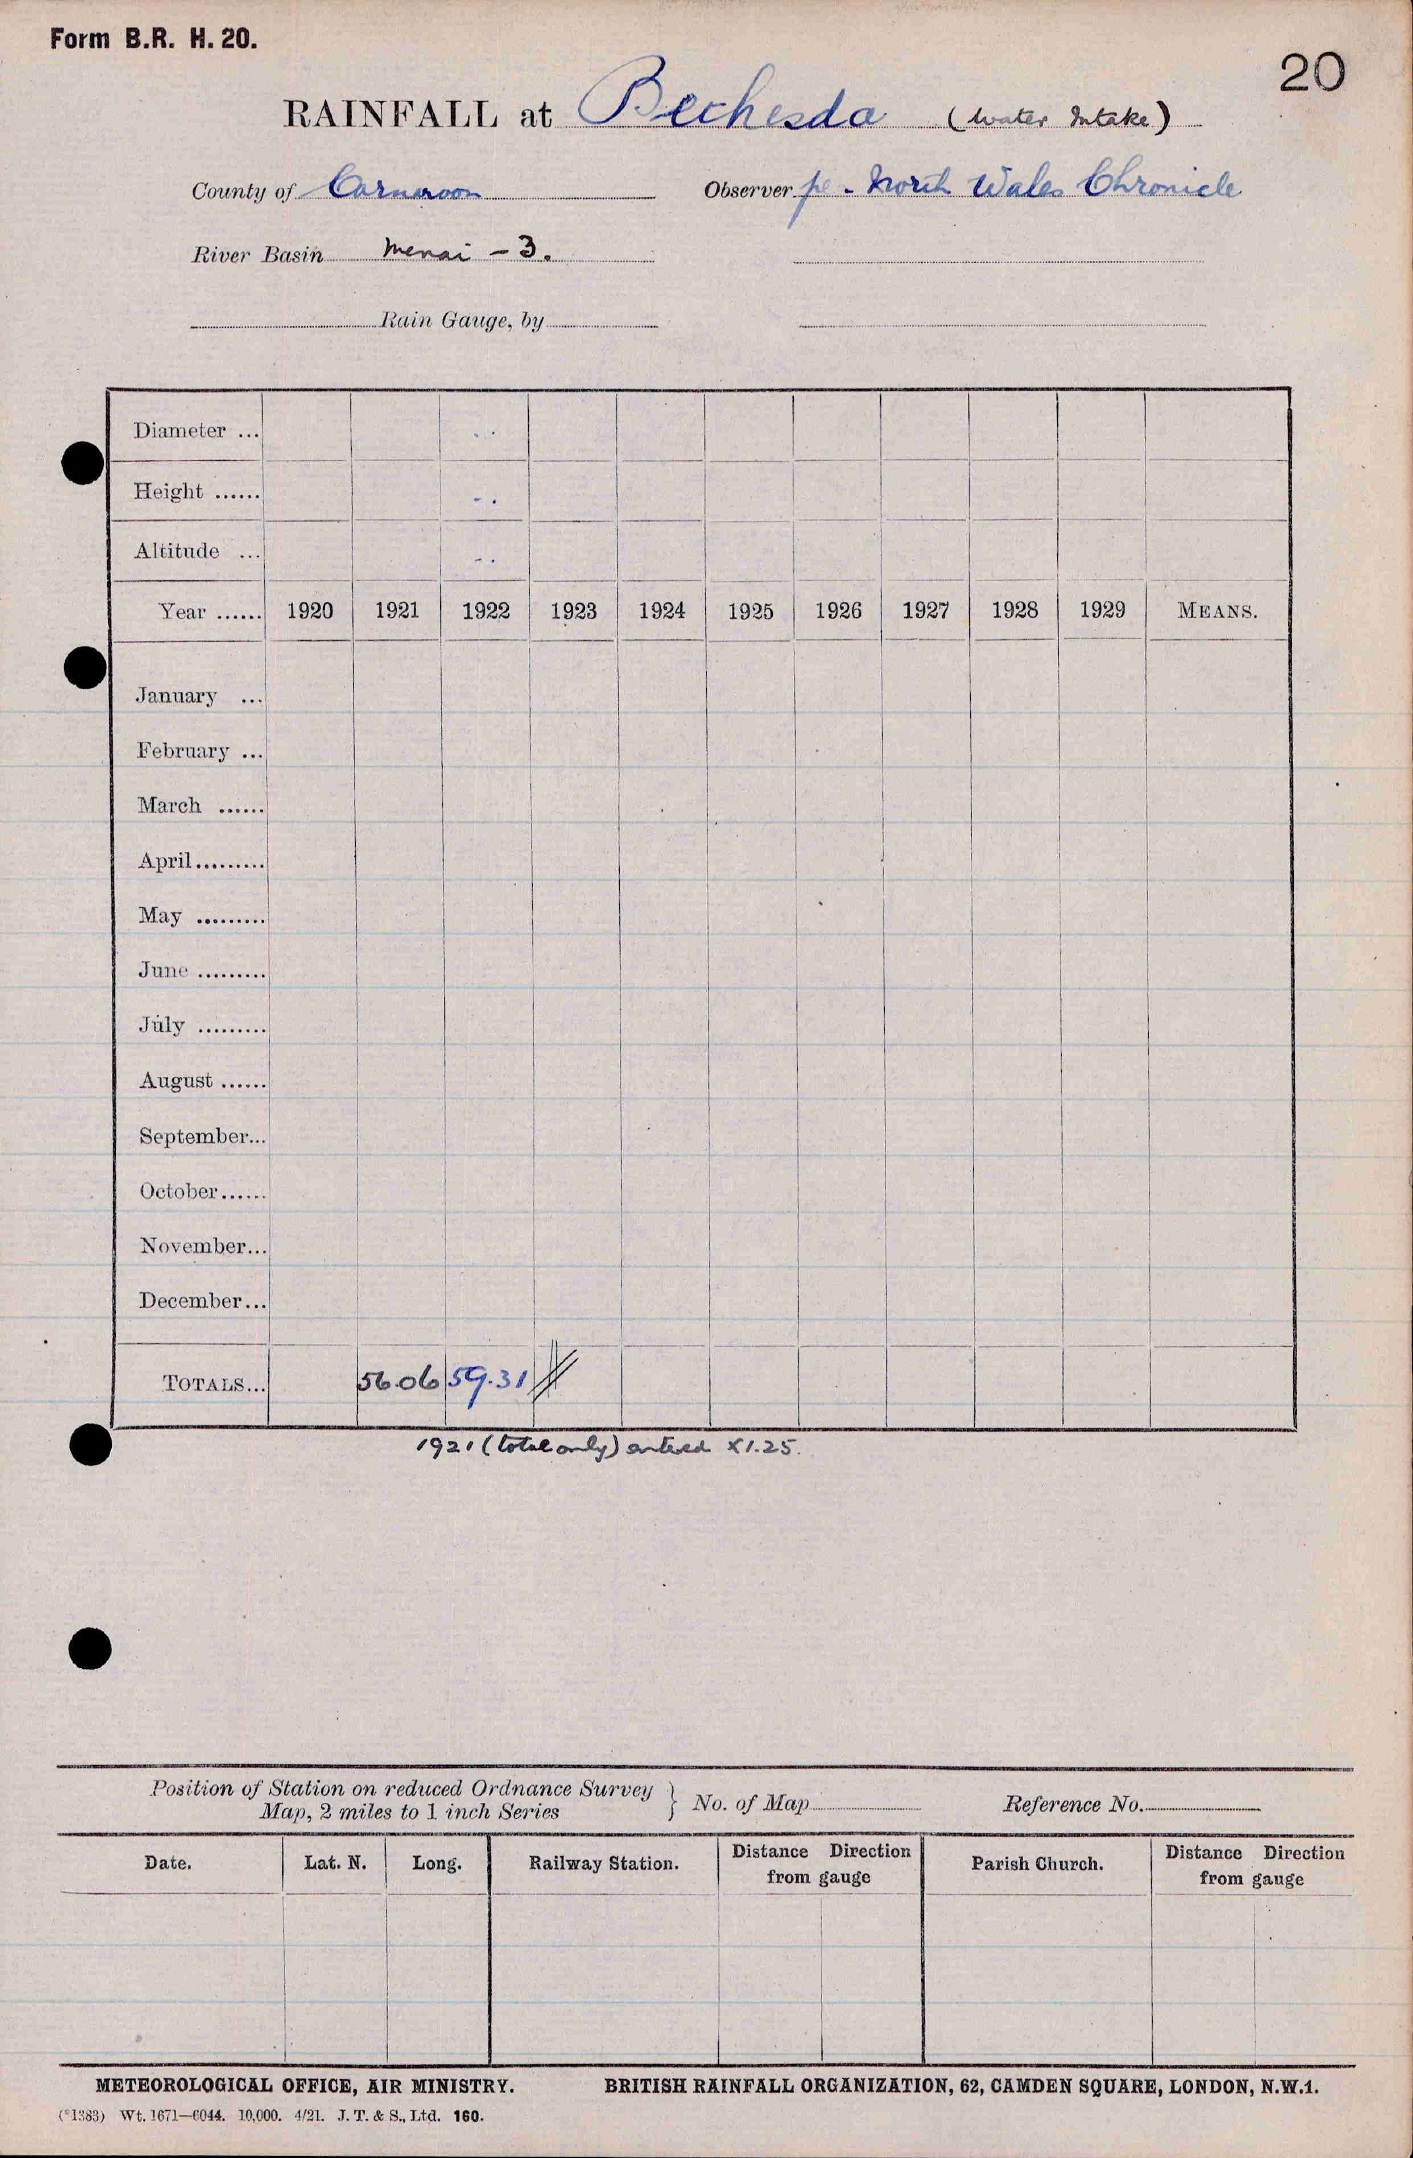 Form B.R. H. 20.
20
RAINFALL at Bethesda (Water Intake)
County of Carnarvon Observer per North Wales Chronicle
River Basin Menai - 3.
Rain Gauge, by
Diameter ...
Height ......
Altitude ...
Year ...... 1920 1921 1922 1923 1924 1925 1926 1927 1928 1929 MEANS.
January ...
February ...
March ......
April.........
May .........
June .........
July .........
August ......
September...
October......
November...
December...
TOTALS... 56.06 59.31
1921 (total only) entered X1.25.
Position of Station on reduced Ordnance Survey
Map, 2 miles to 1 inch Series } No. of Map Reference No.
Date. Lat. N. Long. Railway Station. Distance Direction from gauge Parish Church. Distance Direction from gauge
METEOROLOGICAL OFFICE, AIR MINISTRY. BRITISH RAINFALL ORGANIZATION, 62, CAMDEN SQUARE, LONDON, N.W.1.
(*1383) Wt. 1671—6044. 10,000. 4/21. J. T. & S., Ltd. 160.